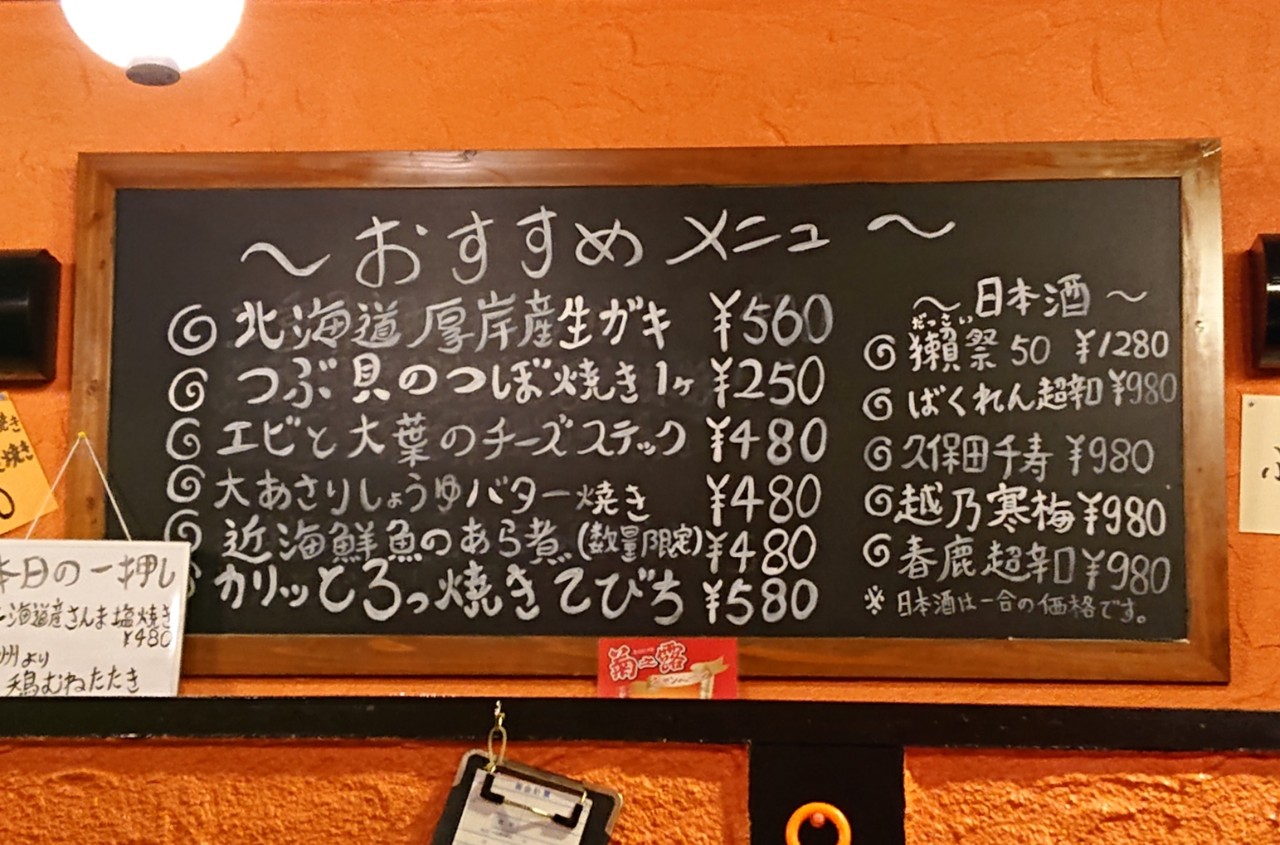 ～おすすめメニュー～
北海道厚岸産生ガキ ¥560
つぶ貝のつぼ焼き1ヶ ¥250
エビと大葉のチーズスティック ¥480
大あさりしょうゆバター焼き ¥480
近海鮮魚のあら煮(数量限定) ¥480
カリッとろっ焼きてびち ¥580
～日本酒～
だっさい
獺祭50 ¥1280
ばくれん超辛口 ¥980
久保田千寿 ¥980
越乃寒梅 ¥980
春鹿超辛口 ¥980
※日本酒は一合の価格です。
本日の一押し
北海道産さんま塩焼き
¥480
州より
鶏むねたたき
菊之露
焼き
焼き